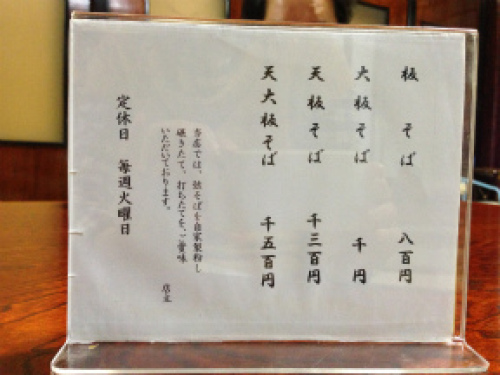 板そば 八百円
大板そば 千円
天板そば 千三百円
天大板そば 千五百円
当店では、抜そばを自家製粉し
碾きたて、打ちたてを、ご賞味
いただいております。
店主
定休日 毎週火曜日